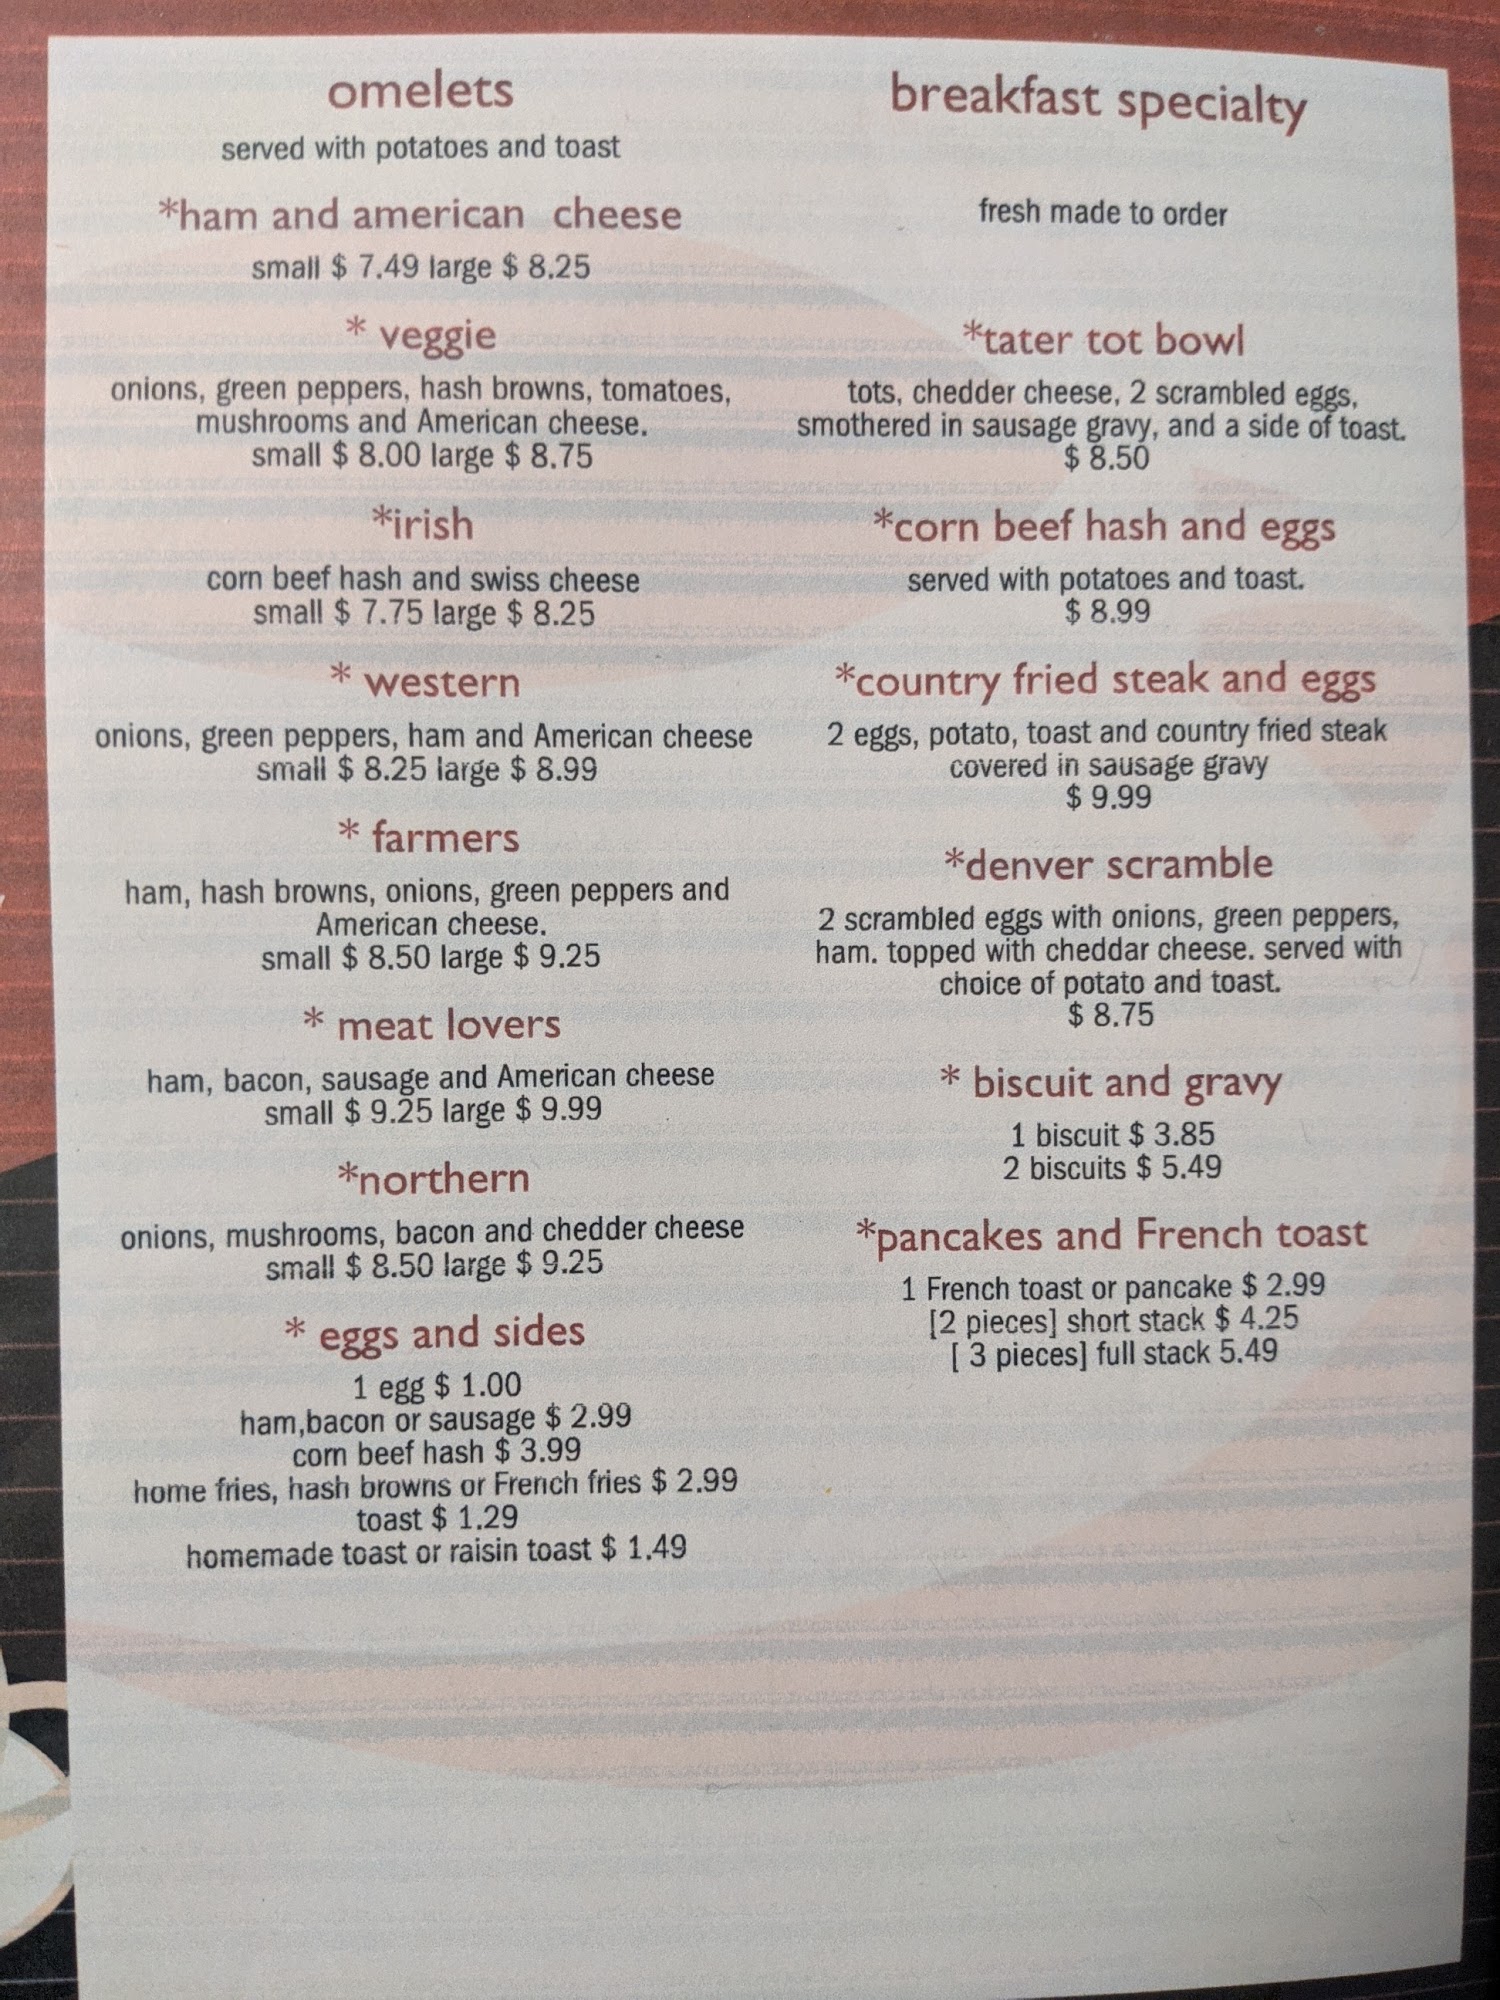 omelets
served with potatoes and toast
*ham and american cheese
small $ 7.49 large $ 8.25
* veggie
onions, green peppers, hash browns, tomatoes,
mushrooms and American cheese.
small $ 8.00 large $ 8.75
*irish
corn beef hash and swiss cheese
small $ 7.75 large $ 8.25
* western
onions, green peppers, ham and American cheese
small $ 8.25 large $ 8.99
* farmers
ham, hash browns, onions, green peppers and
American cheese.
small $ 8.50 large $ 9.25
* meat lovers
ham, bacon, sausage and American cheese
small $ 9.25 large $ 9.99
*northern
onions, mushrooms, bacon and chedder cheese
small $ 8.50 large $ 9.25
* eggs and sides
1 egg $ 1.00
ham,bacon or sausage $ 2.99
corn beef hash $ 3.99
home fries, hash browns or French fries $ 2.99
toast $ 1.29
homemade toast or raisin toast $ 1.49
breakfast specialty
fresh made to order
*tater tot bowl
tots, chedder cheese, 2 scrambled eggs,
smothered in sausage gravy, and a side of toast.
$ 8.50
*corn beef hash and eggs
served with potatoes and toast.
$ 8.99
*country fried steak and eggs
2 eggs, potato, toast and country fried steak
covered in sausage gravy
$ 9.99
*denver scramble
2 scrambled eggs with onions, green peppers,
ham. topped with cheddar cheese. served with
choice of potato and toast.
$ 8.75
* biscuit and gravy
1 biscuit $ 3.85
2 biscuits $ 5.49
*pancakes and French toast
1 French toast or pancake $ 2.99
[2 pieces] short stack $ 4.25
[ 3 pieces] full stack 5.49